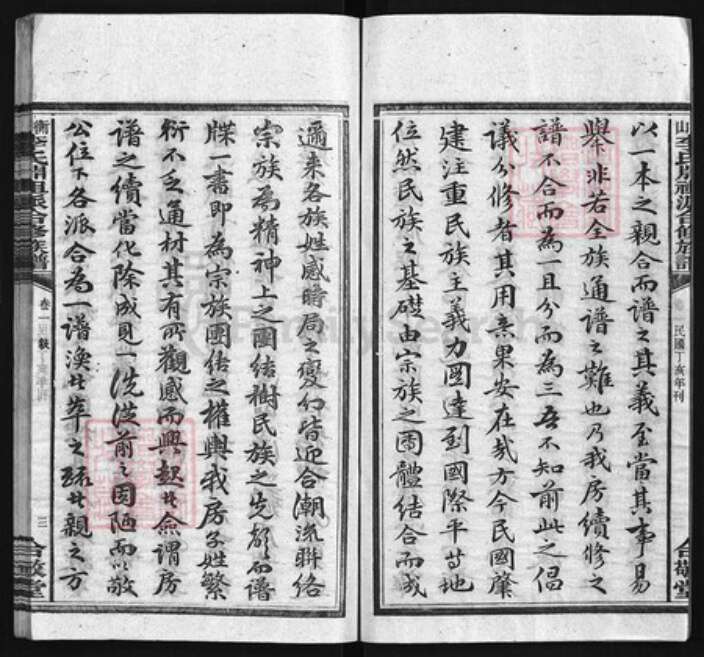 以一本之親合而譜之其義至當其事易
舉非若全族通譜之難也乃我房續修之
譜不合而為一且分而為三吾不知前此之倡
議分修者其用意果安在哉方今民國肇
建注重民族主義力圖達到國際平等地
位然民族之基礎由宗族之團體結合而成
邇來各族姓感時局之變幻皆迎合潮流聯絡
宗族為精神上之團結樹民族之先聲而譜
牒一書即為宗族團結之權輿我房子姓繁
衍不乏通材其有所觀感而興起者僉謂房
譜之續當化除成見一洗從前之固陋而以敬
公位下各派合為一譜渙者萃之疏者親之方
民國丁亥年刊
合敬堂
衡
合修族譜
卷一
三
合敬堂